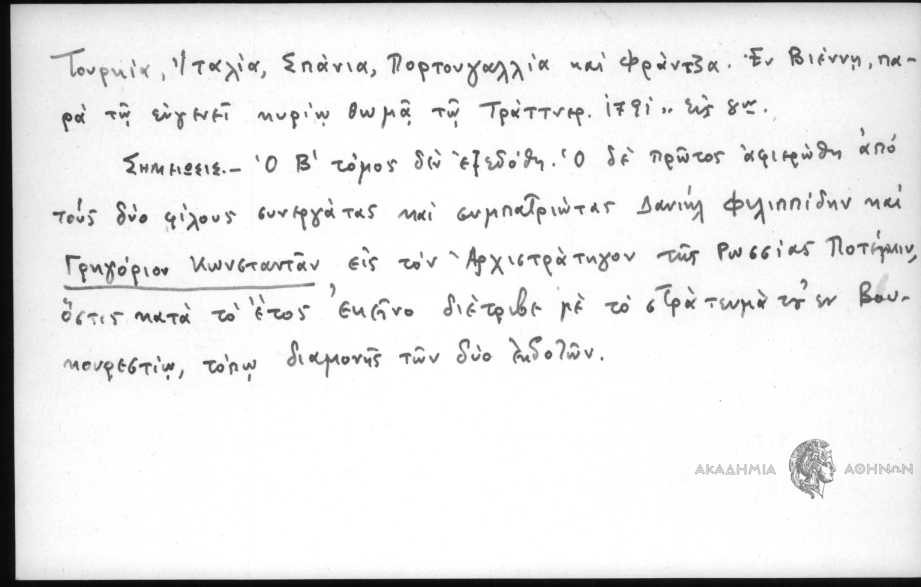 Τουρκία, Ἰταλία, Σπάνια, Πορτουγαλλία καὶ Φράντζα. Ἐν Βιέννῃ, πα-
ρὰ τῷ εὐγενεῖ κυρίῳ Θωμᾷ τῷ Τράττνερ. 1791 „ εἰς 8ον.
Σημείωσις.- Ὁ Β' τόμος δὲν ἐξεδόθη. Ὁ δὲ πρῶτος ἀφιερώθη ἀπό
τοὺς δύο φίλους συνεργάτας καὶ συμπατριώτας Δανιὴλ Φιλιππίδην καὶ
Γρηγόριον Κωνσταντᾶν εἰς τὸν Ἀρχιστράτηγον τῆς Ρωσσίας Ποτέμκιν,
ὅστις κατὰ τὸ ἔτος ἐκεῖνο διέτριβε μὲ τὸ στράτευμὰ του ἐν Βου-
κουρεστίῳ, τόπῳ διαμονῆς τῶν δύο ἐκδοτῶν.
ΑΚΑΔΗΜΙΑ ΑΘΗΝΩΝ